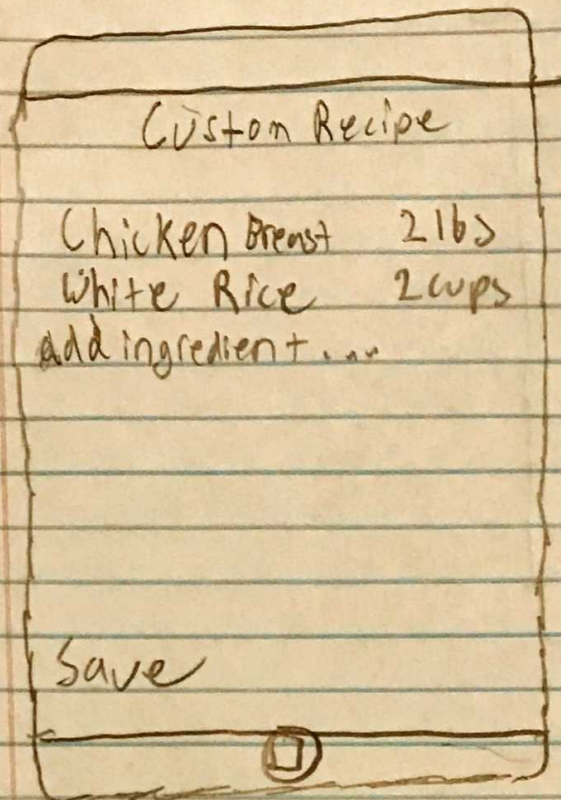 Custom Recipe
Chicken Breast 2 lbs
White Rice 2 cups
add ingredient...
Save